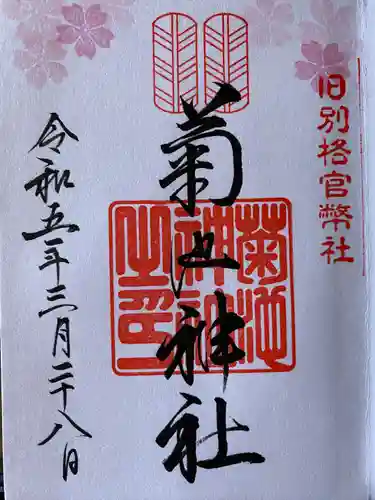 旧別格官幣社
菊池神社
菊池神社之印
令和五年三月二十八日